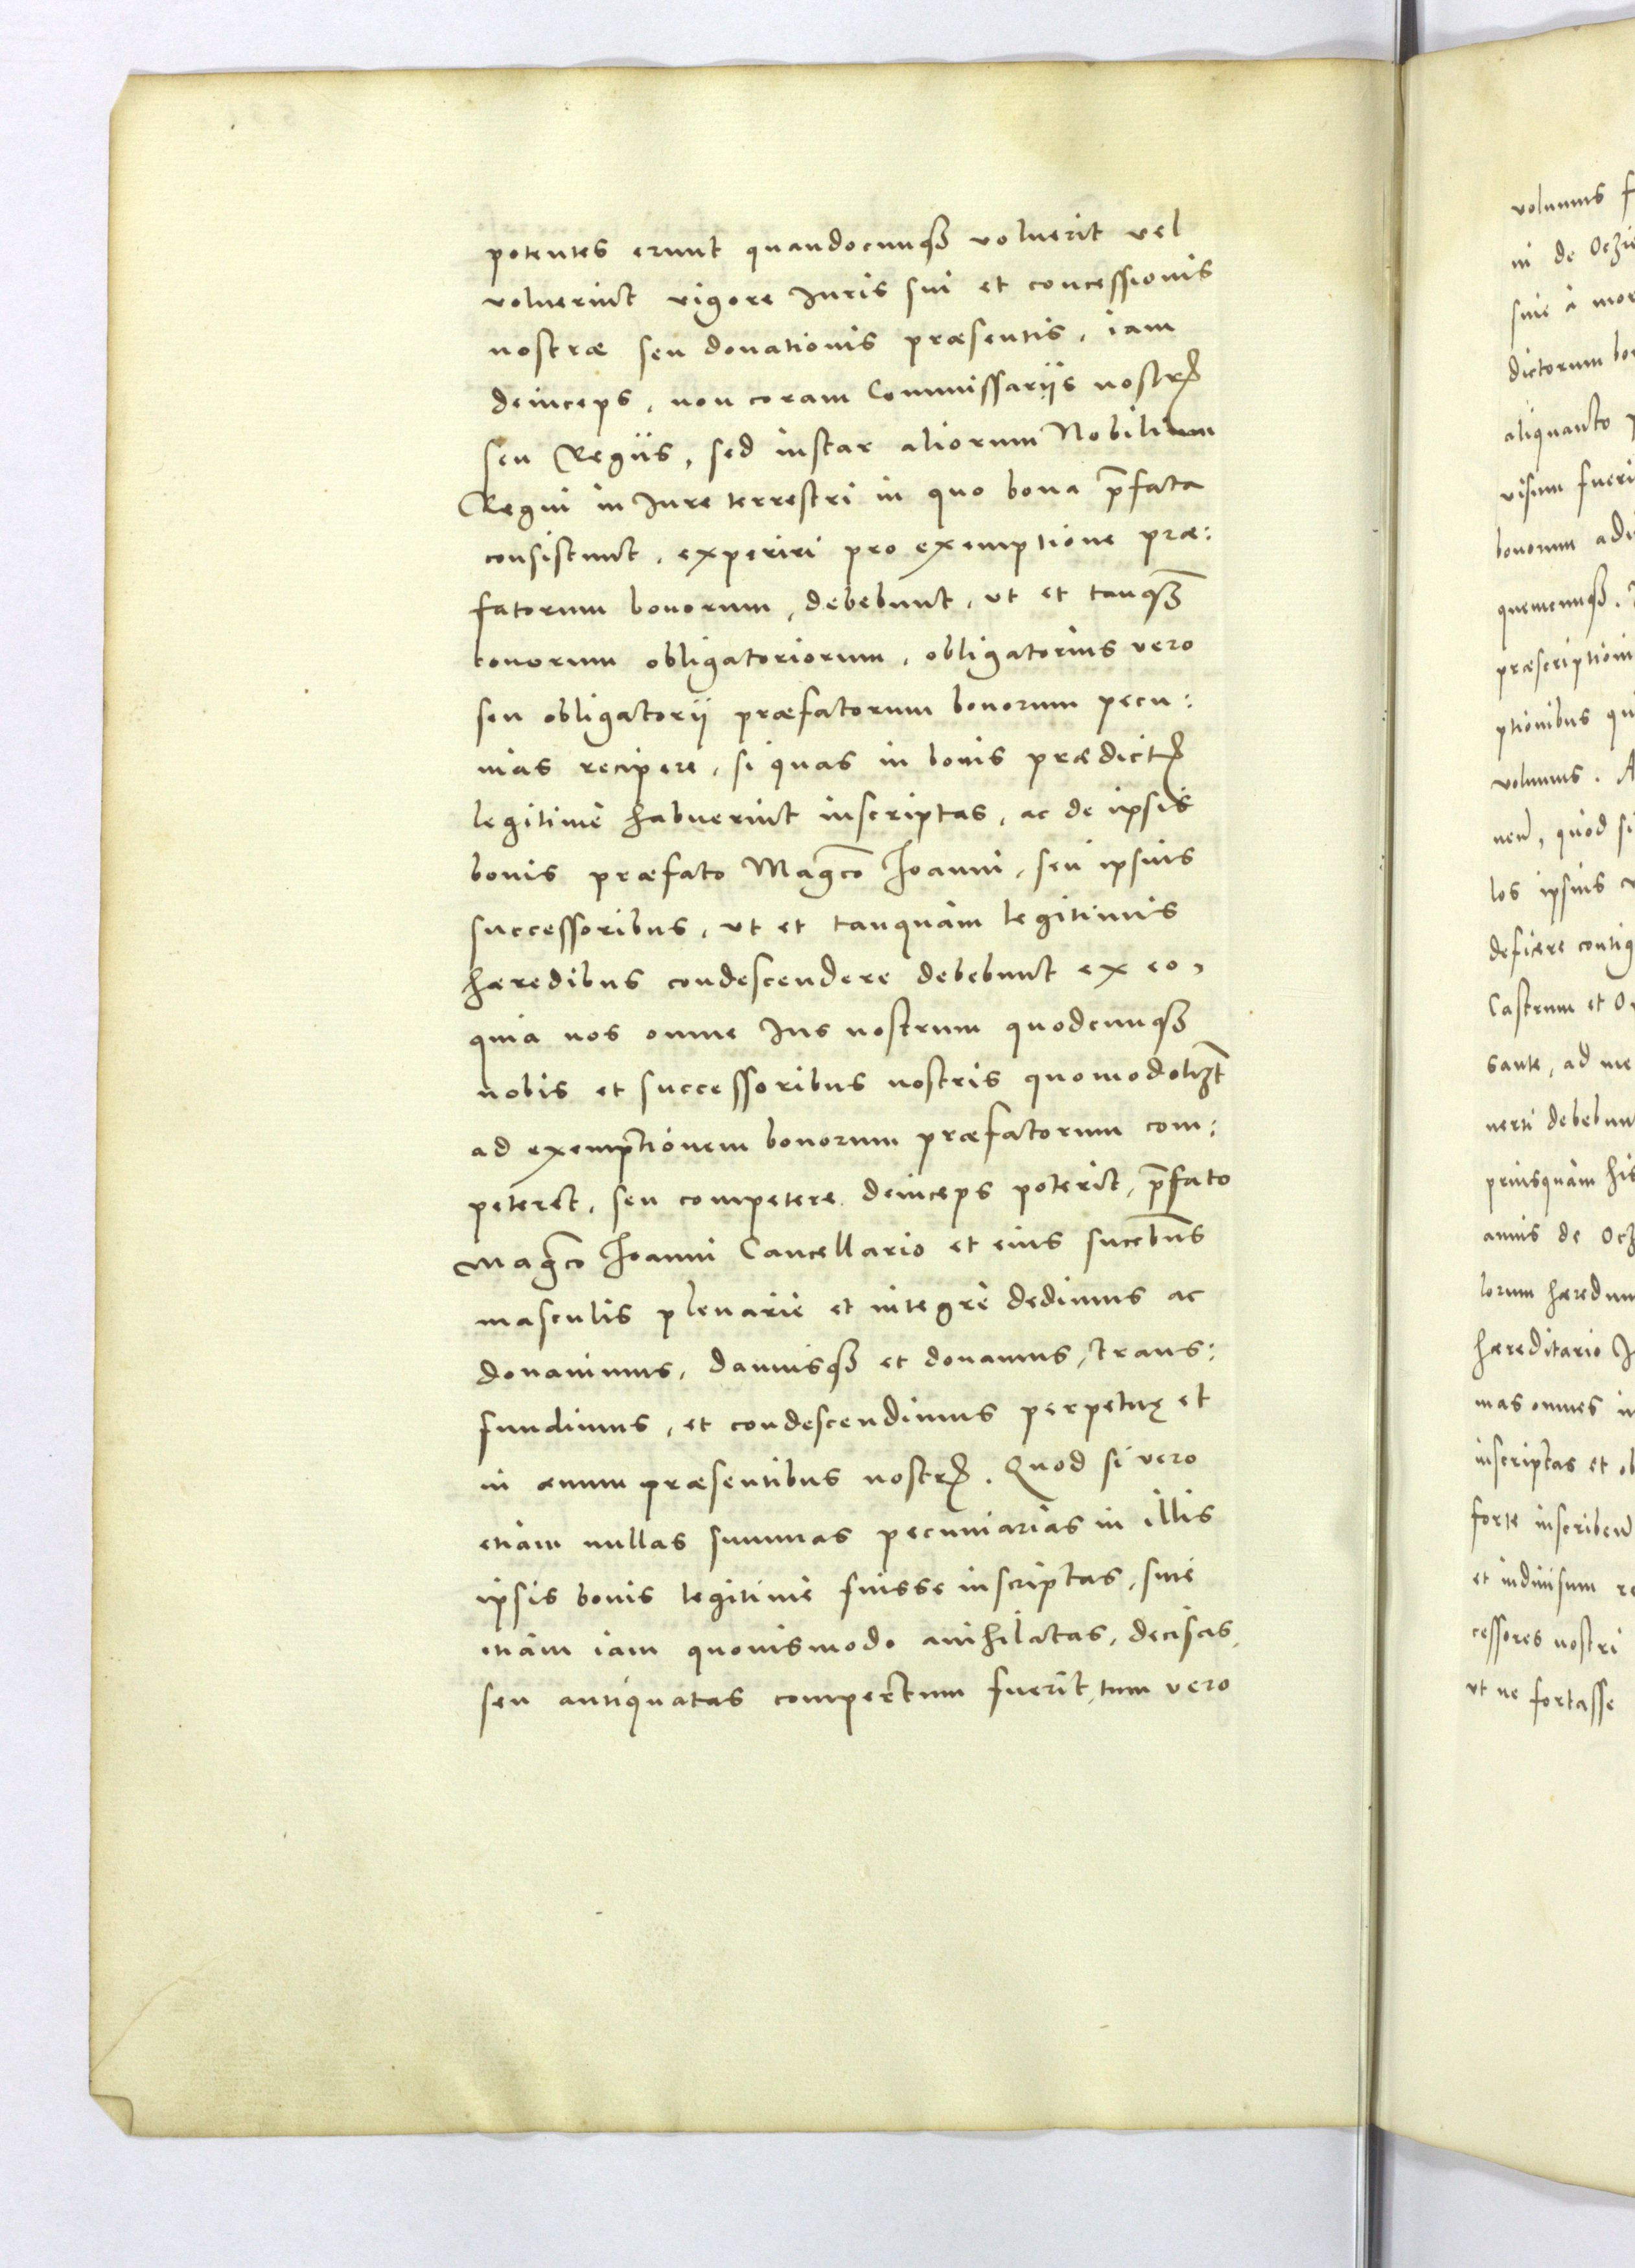 potentes erunt quandocunq3 voluerit vel
voluerint vigore Iuris sui et concessionis
nostræ seu donationis præsentis, iam
deinceps, non coram Commissariis nostrꝭ
seu Regiis, sed instar aliorum Nobilium
Regni in Iure terrestri in quo bona p̄fata
consistunt, experiri pro exemptione præ:
fatorum bonorum, debebunt, ut et tanq̄3
bonorum obligatoriorum, obligatorius vero
seu obligatorij præfatorum bonorum pecu:
nias recipere, si quas in bonis prædictꝭ
legitimè habuerint inscriptas, ac de ipsis
bonis præfato Mag̅co Ioanni, seu ipsius
successoribus, ut et tanquàm legitimis
hæredibus condescendere debebunt ex eo,
quia nos omne Ius nostrum quodcunq3
nobis et successoribus nostris quomodoliz̄t
ad exemptionem bonorum præfatorum com:
peteret, seu competere deinceps poterit, p̄fato
Mag̅co Ioanni Cancellario et eius succ̄bus
masculis plenariè et integrè dedimus ac
donavimus, damusq3 et donamus, trans:
fundimus, et condescendimus perpetuę et
in ævum præsentibus nostrꝭ. Quod si vero
etiam nullas summas pecuniarias in illis
ipsis bonis legitimè fuisse inscriptas, sive
etiàm iam quovismodo anihilatas, decisas,
seu antiquatas compertum fuerit, tum vero
volumus
in de
sive à
dictorum
aliquanto
visum
bonorum
quemcunq3.
ptionibus
volumus.
quod
los ipsius
Castrum et
ad
verti
priusquàm
annis de
lorum
hæreditario
omnes
inscriptas et
forte
et indivisum
cessores nostri
ut ne fortasse